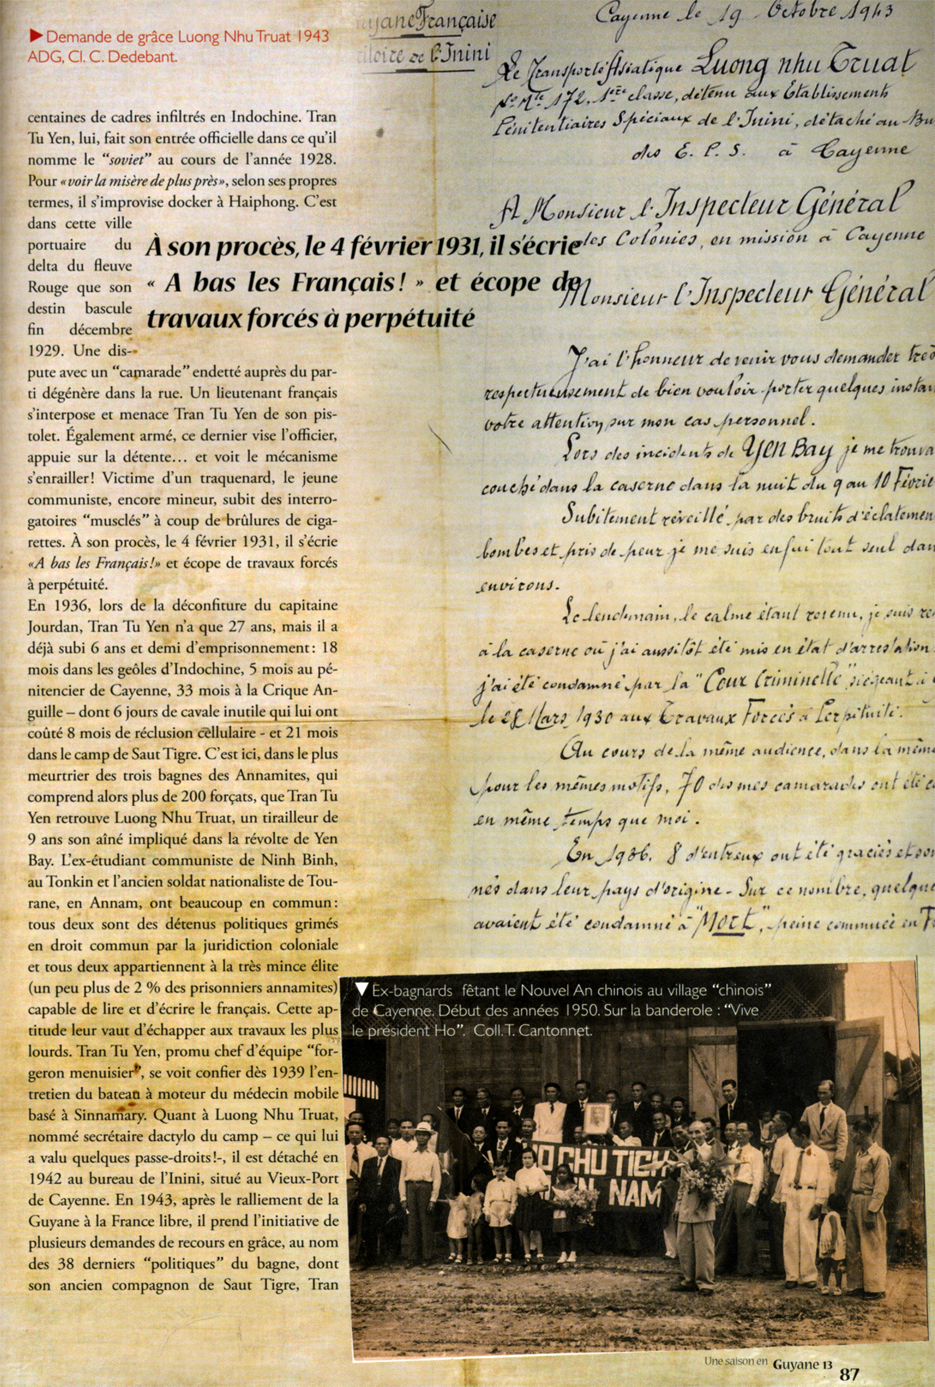 ▶Demande de grâce Luong Nhu Truat 1943
ADG, Cl. C. Dedebant.
centaines de cadres infiltrés en Indochine. Tran
Tu Yen, lui, fait son entrée officielle dans ce qu'il
nomme le "soviet" au cours de l'année 1928.
Pour «voir la misère de plus près», selon ses propres
termes, il s'improvise docker à Haiphong. C'est
dans cette ville
portuaire du
delta du fleuve
Rouge que son
destin bascule
fin décembre
1929. Une dis-
pute avec un "camarade" endetté auprès du par-
ti dégénère dans la rue. Un lieutenant français
s'interpose et menace Tran Tu Yen de son pis-
tolet. Également armé, ce dernier vise l'officier,
appuie sur la détente… et voit le mécanisme
s'enrailler! Victime d'un traquenard, le jeune
communiste, encore mineur, subit des interro-
gatoires "musclés" à coup de brûlures de ciga-
rettes. À son procès, le 4 février 1931, il s'écrie
«A bas les Français!» et écope de travaux forcés
à perpétuité.
En 1936, lors de la déconfiture du capitaine
Jourdan, Tran Tu Yen n'a que 27 ans, mais il a
déjà subi 6 ans et demi d'emprisonnement: 18
mois dans les geôles d'Indochine, 5 mois au pé-
nitencier de Cayenne, 33 mois à la Crique An-
guille – dont 6 jours de cavale inutile qui lui ont
coûté 8 mois de réclusion cellulaire - et 21 mois
dans le camp de Saut Tigre. C'est ici, dans le plus
meurtrier des trois bagnes des Annamites, qui
comprend alors plus de 200 forçats, que Tran Tu
Yen retrouve Luong Nhu Truat, un tirailleur de
9 ans son aîné impliqué dans la révolte de Yen
Bay. L'ex-étudiant communiste de Ninh Binh,
au Tonkin et l'ancien soldat nationaliste de Tou-
rane, en Annam, ont beaucoup en commun:
tous deux sont des détenus politiques grimés
en droit commun par la juridiction coloniale
et tous deux appartiennent à la très mince élite
(un peu plus de 2 % des prisonniers annamites)
capable de lire et d'écrire le français. Cette ap-
titude leur vaut d'échapper aux travaux les plus
lourds. Tran Tu Yen, promu chef d'équipe "for-
geron menuisier", se voit confier dès 1939 l'en-
tretien du bateau à moteur du médecin mobile
basé à Sinnamary. Quant à Luong Nhu Truat,
nommé secrétaire dactylo du camp – ce qui lui
a valu quelques passe-droits!-, il est détaché en
1942 au bureau de l'Inini, situé au Vieux-Port
de Cayenne. En 1943, après le ralliement de la
Guyane à la France libre, il prend l'initiative de
plusieurs demandes de recours en grâce, au nom
des 38 derniers "politiques" du bagne, dont
son ancien compagnon de Saut Tigre, Tran
À son procès, le 4 février 1931, il s'écrie
« A bas les Français! » et écope de
travaux forcés à perpétuité
Guyane Française
de l'Inini
Cayenne le 19 Octobre 1943
Le Transporté Asiatique Luong nhu Truat
No Mle 172, 1ère classe, détenu aux Etablissements
Pénitentiaires Spéciaux de l'Inini, détaché au Bu
des E. P. S. à Cayenne
A Monsieur l'Inspecteur Général
des Colonies, en mission à Cayenne
Monsieur l'Inspecteur Général
J'ai l'honneur de venir vous demander trè
respectueusement de bien vouloir porter quelques instan
votre attention sur mon cas personnel.
Lors des incidents de Yen Bay je me trouva
couché dans la caserne dans la nuit du 9 au 10 Févrie
Subitement réveillé par des bruits d'éclatemen
bombes et pris de peur je me suis enfui tout seul dan
environs.
Le lendemain, le calme étant revenu, je suis re
à la caserne où j'ai aussitôt été mis en état d'arrestation
j'ai été condamné par la "Cour Criminelle" siégeant à
le 28 Mars 1930 aux Travaux Forcés à Perpétuité.
Au cours de la même audience, dans la mêm
pour les mêmes motifs, 70 de mes camarades ont été c
en même temps que moi.
En 1936. 8 d'entreux ont été graciés et
nés dans leur pays d'origine - Sur ce nombre, quelque
avaient été condamné à "Mort", peine commuée en T
▼Ex-bagnards fêtant le Nouvel An chinois au village "chinois"
de Cayenne. Début des années 1950. Sur la banderole : "Vive
le président Ho". Coll. T. Cantonnet.
O CHU TICH
NAM
Une saison en Guyane 13
87